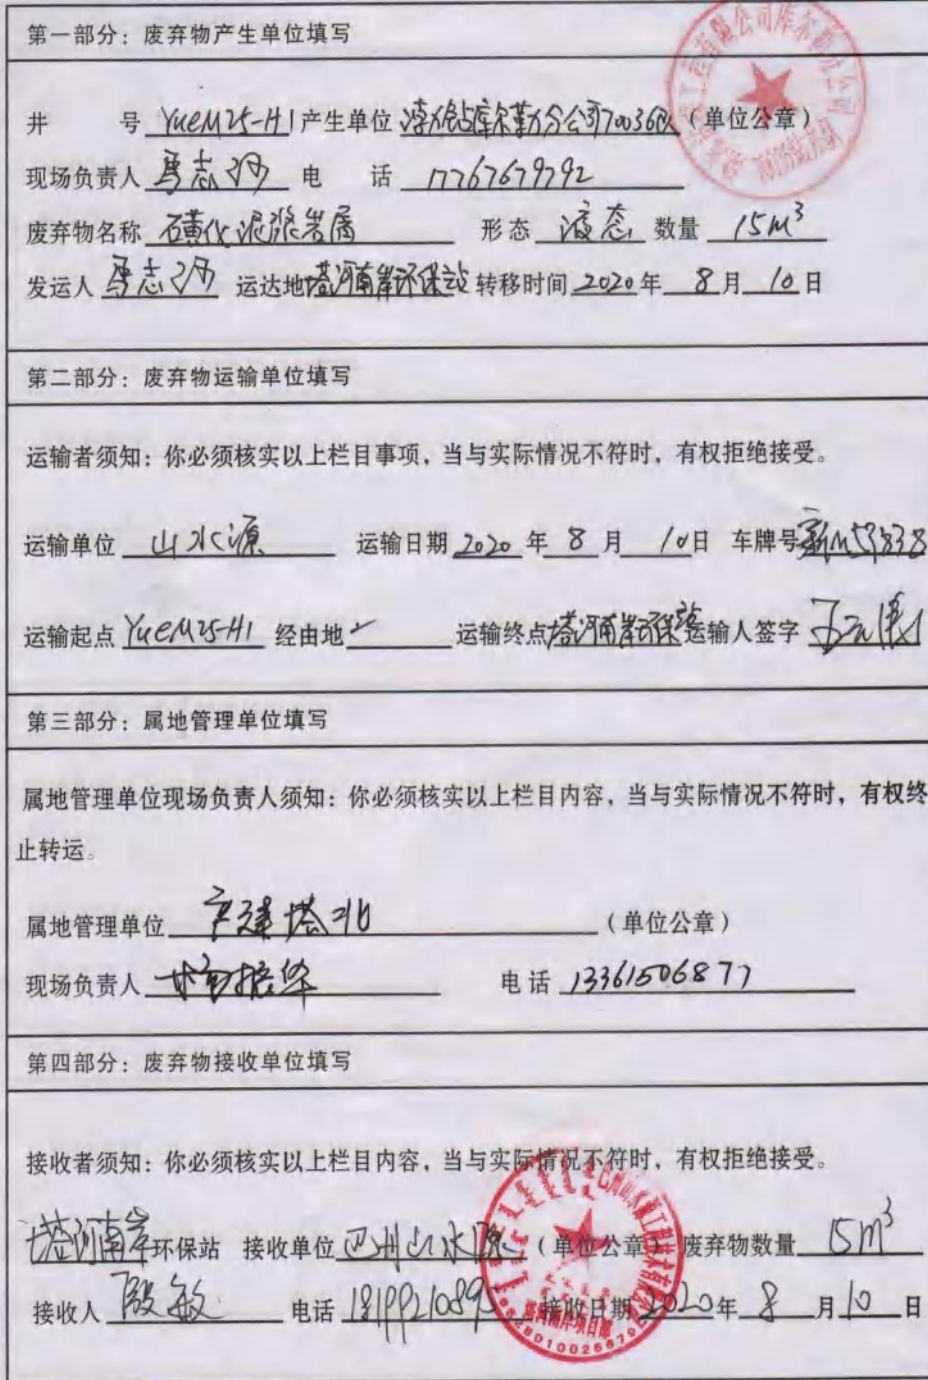 第一部分：废弃物产生单位填写
井 号 YueM25-H1 产生单位 渤钻库尔勒分公司70036队（单位公章）
现场负责人 马志 电 话 17767679792
废弃物名称 磺化泥浆岩屑 形态 液态 数量 15m³
发运人 马志 运达地 塔河南岸环保站 转移时间 2020年 8月 10日
第二部分：废弃物运输单位填写
运输者须知：你必须核实以上栏目事项，当与实际情况不符时，有权拒绝接受。
运输单位 山水源 运输日期 2020年 8月 10日 车牌号 新M59838
运输起点 YueM25-H1 经由地 运输终点 塔河南岸环保站 运输人签字
第三部分：属地管理单位填写
属地管理单位现场负责人须知：你必须核实以上栏目内容，当与实际情况不符时，有权终
止转运。
属地管理单位 塔北（单位公章）
现场负责人 电话 13361506877
第四部分：废弃物接收单位填写
接收者须知：你必须核实以上栏目内容，当与实际情况不符时，有权拒绝接受。
塔河南岸环保站 接收单位 巴州山水源（单位公章）废弃物数量 15m³
接收人 殷敏 电话 1819921089 接收日期 2020年 8月 10日
塔河南岸项目部